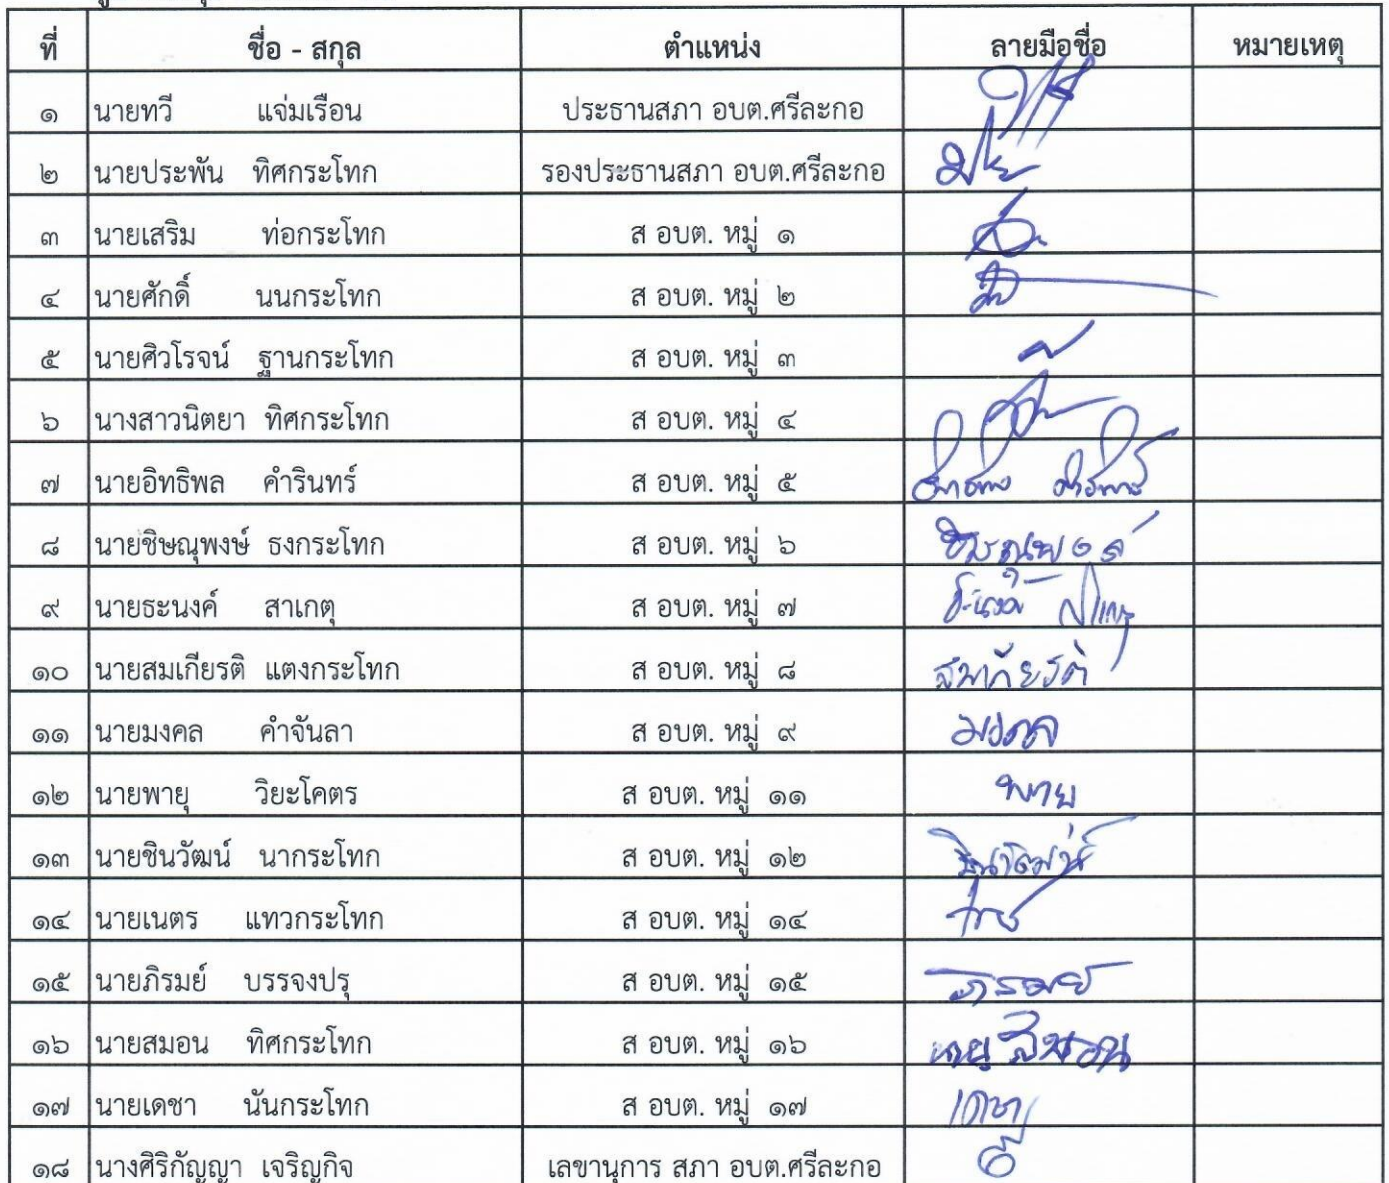 ที่ ชื่อ - สกุล ตำแหน่ง ลายมือชื่อ หมายเหตุ
๑ นายทวี แจ่มเรือน ประธานสภา อบต.ศรีละกอ
๒ นายประพัน ทิศกระโทก รองประธานสภา อบต.ศรีละกอ
๓ นายเสริม ท่อกระโทก ส อบต. หมู่ ๑
๔ นายศักดิ์ นนกระโทก ส อบต. หมู่ ๒
๕ นายศิวโรจน์ ฐานกระโทก ส อบต. หมู่ ๓
๖ นางสาวนิตยา ทิศกระโทก ส อบต. หมู่ ๔
๗ นายอิทธิพล คำรินทร์ ส อบต. หมู่ ๕
๘ นายชิษณุพงษ์ ธงกระโทก ส อบต. หมู่ ๖
๙ นายธะนงค์ สาเกตุ ส อบต. หมู่ ๗
๑๐ นายสมเกียรติ แตงกระโทก ส อบต. หมู่ ๘ สมเกียรติ
๑๑ นายมงคล คำจันลา ส อบต. หมู่ ๙ มงคล
๑๒ นายพายุ วิยะโคตร ส อบต. หมู่ ๑๑
๑๓ นายชินวัฒน์ นากระโทก ส อบต. หมู่ ๑๒ ชินวัฒน์
๑๔ นายเนตร แทวกระโทก ส อบต. หมู่ ๑๔
๑๕ นายภิรมย์ บรรจงปรุ ส อบต. หมู่ ๑๕ ภิรมย์
๑๖ นายสมอน ทิศกระโทก ส อบต. หมู่ ๑๖
๑๗ นายเดชา นันกระโทก ส อบต. หมู่ ๑๗ เดชา
๑๘ นางศิริกัญญา เจริญกิจ เลขานุการ สภา อบต.ศรีละกอ